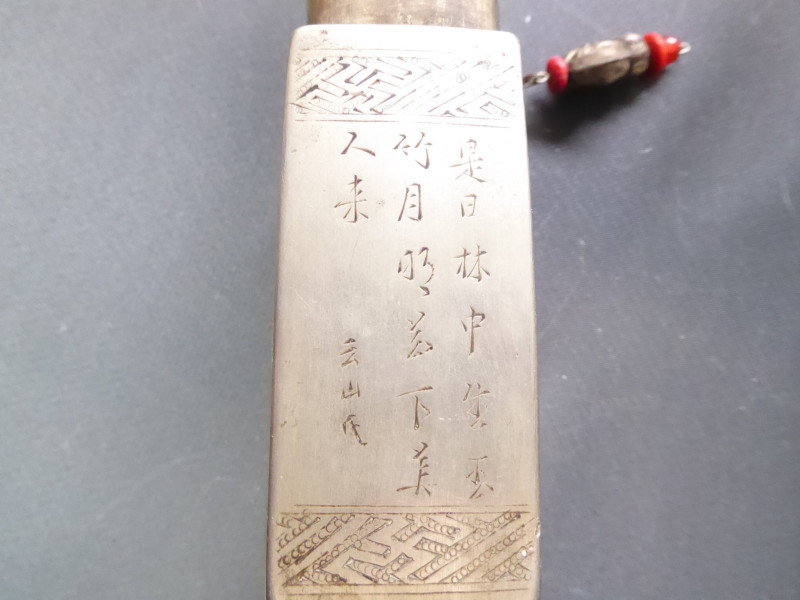 是日林中生玉
竹月明花下美
人来
云山氏